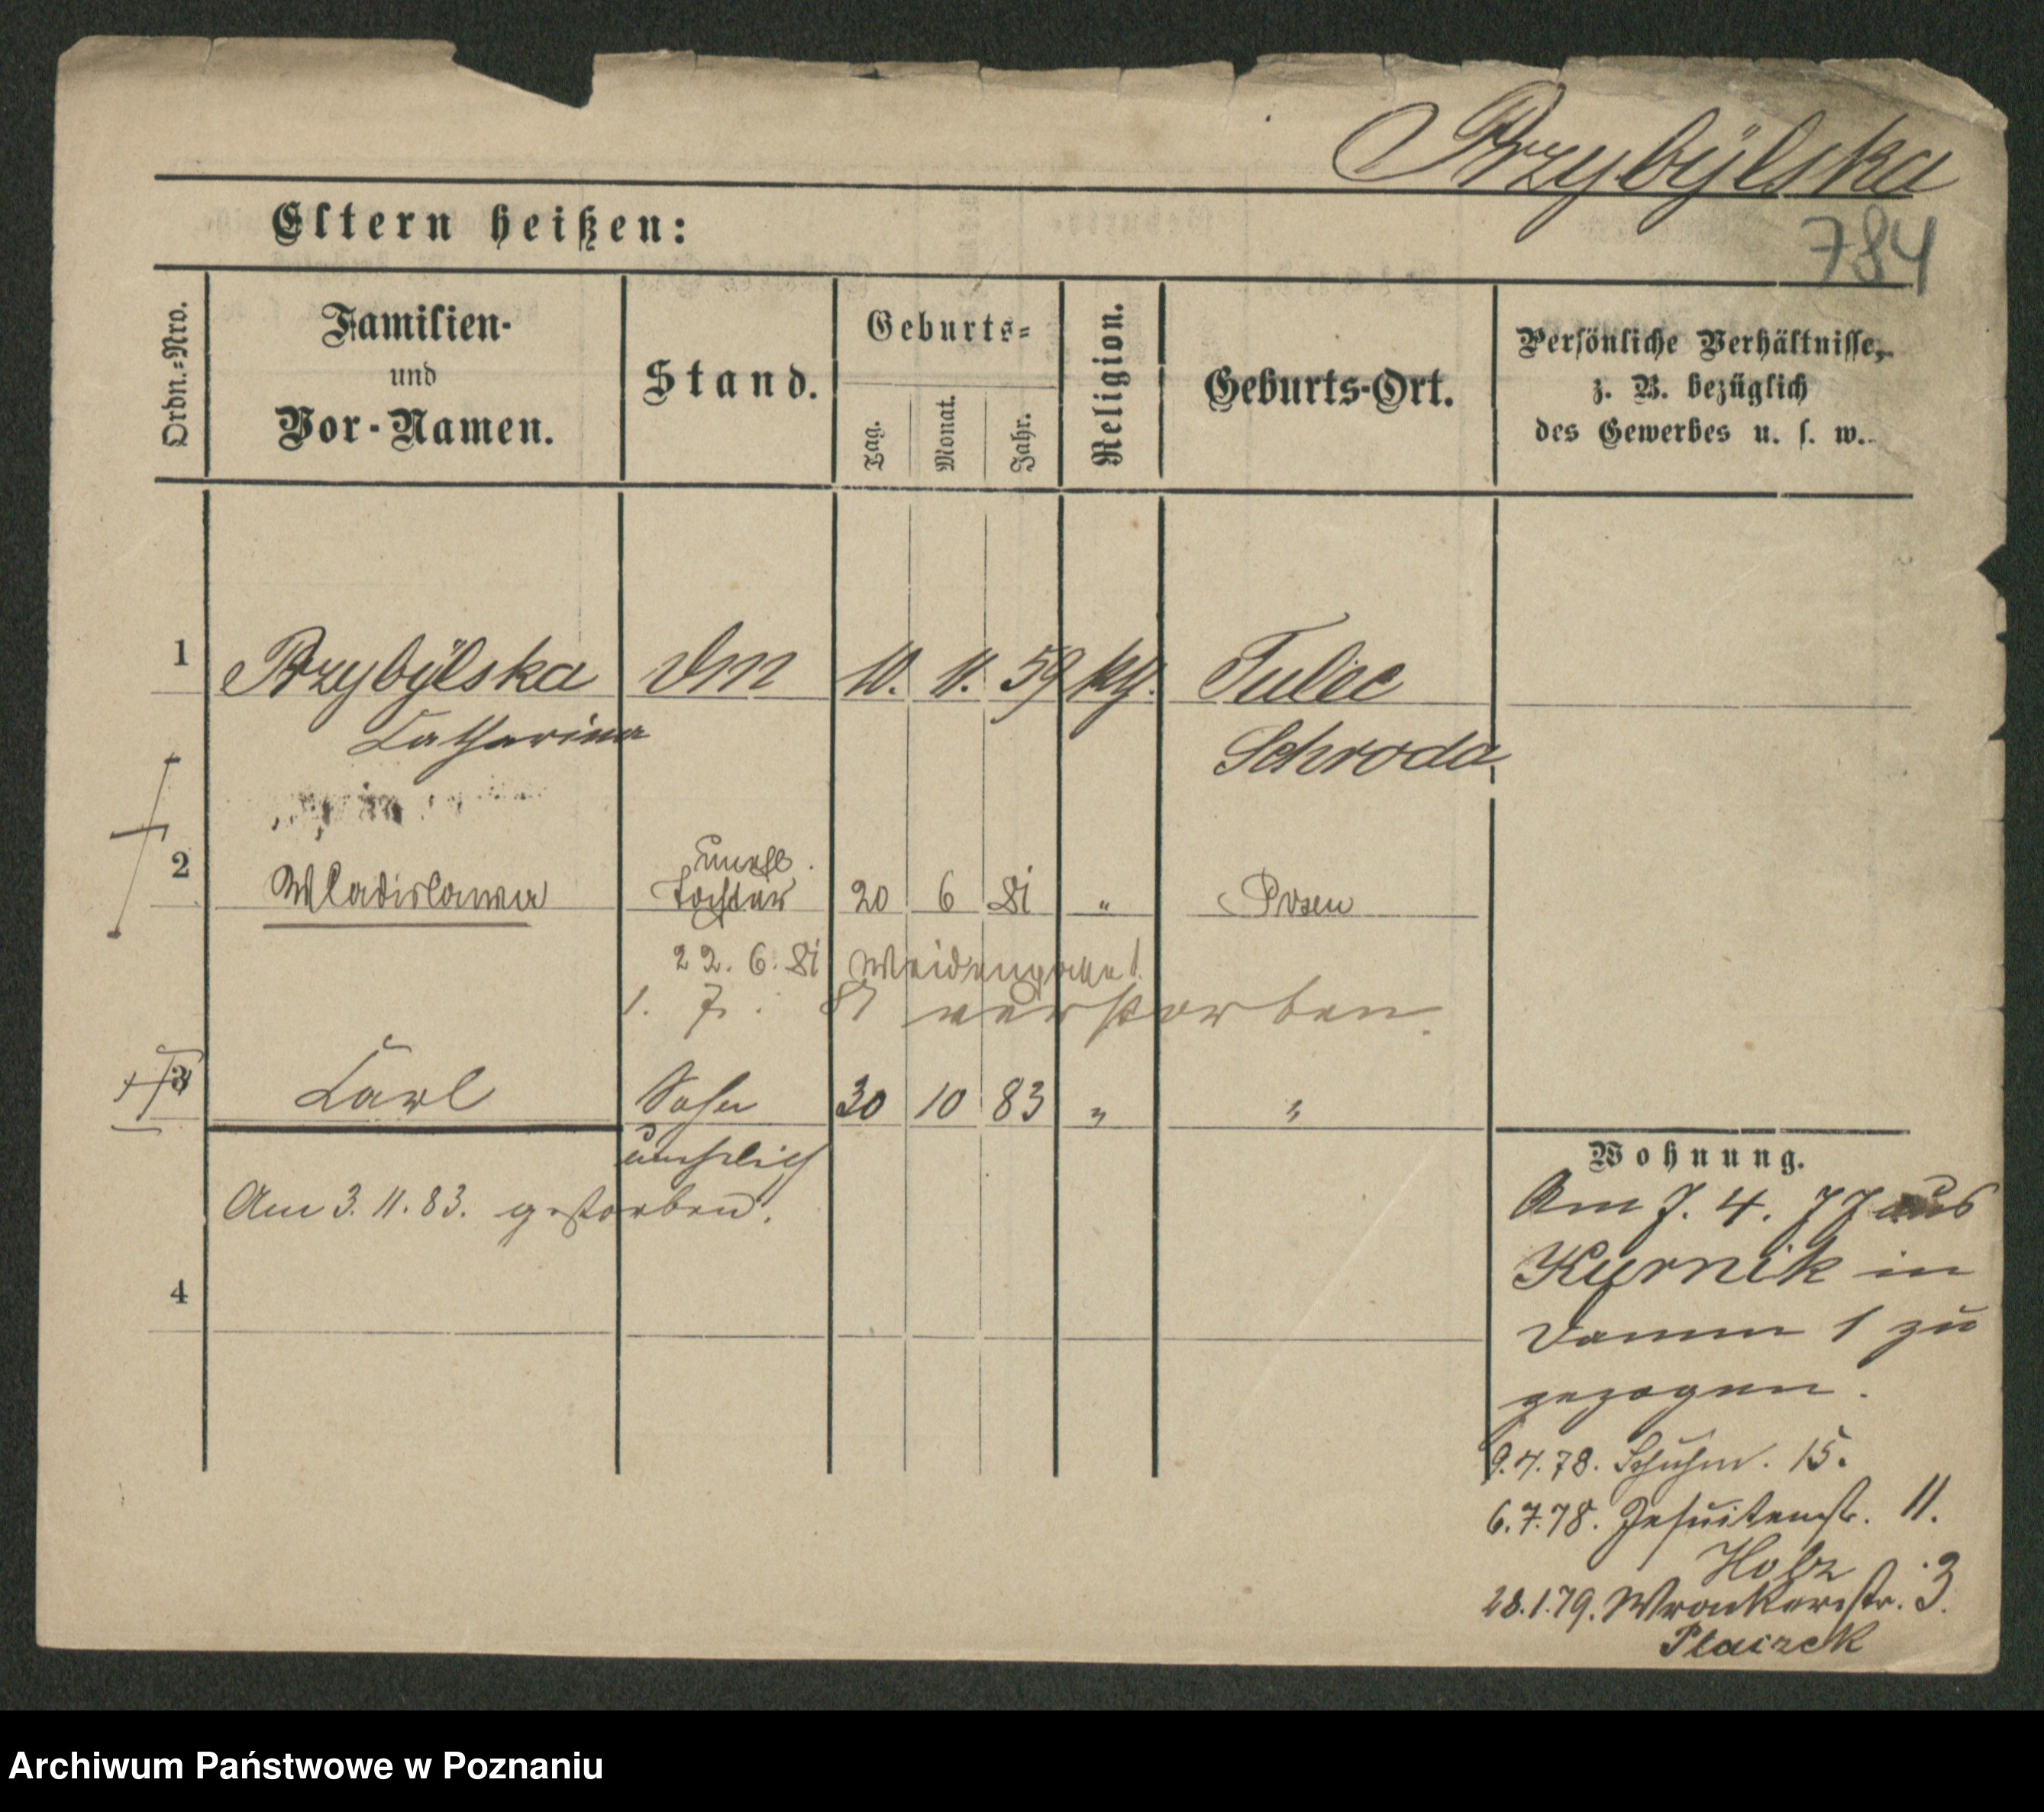 Przybÿlska
784
Eltern heißen:
Ordn.=Nro.
Familien-
und
Vor-Namen.
Stand.
Geburts=
Tag.
Monat.
Jahr.
Religion.
Geburts-Ort.
Persönliche Verhältnisse,
z. B. bezüglich
des Gewerbes u. s. w.
1 Przybÿlska 10. 11. 59 kth. Tulec
Catharina Schroda
unehl.
2 Wladislawa Tochter 20 6 81 " Posen
22. 6. 81 Weidengasse 1.
1. 7. 81 verstorben.
3 Carl Sohn 30 10 83 " "
unehelich
Am 3. 11. 83. gestorben.
4
Wohnung.
Am 7. 4. 77 aus
Kurnik in
Damm 1 zu
gezogen.
9.4.78. Schuhm. 15.
6.7.78. Jesuitenstr. 11.
Holz
28.1.79. Wronkerstr. 3.
Placzek
Archiwum Państwowe w Poznaniu